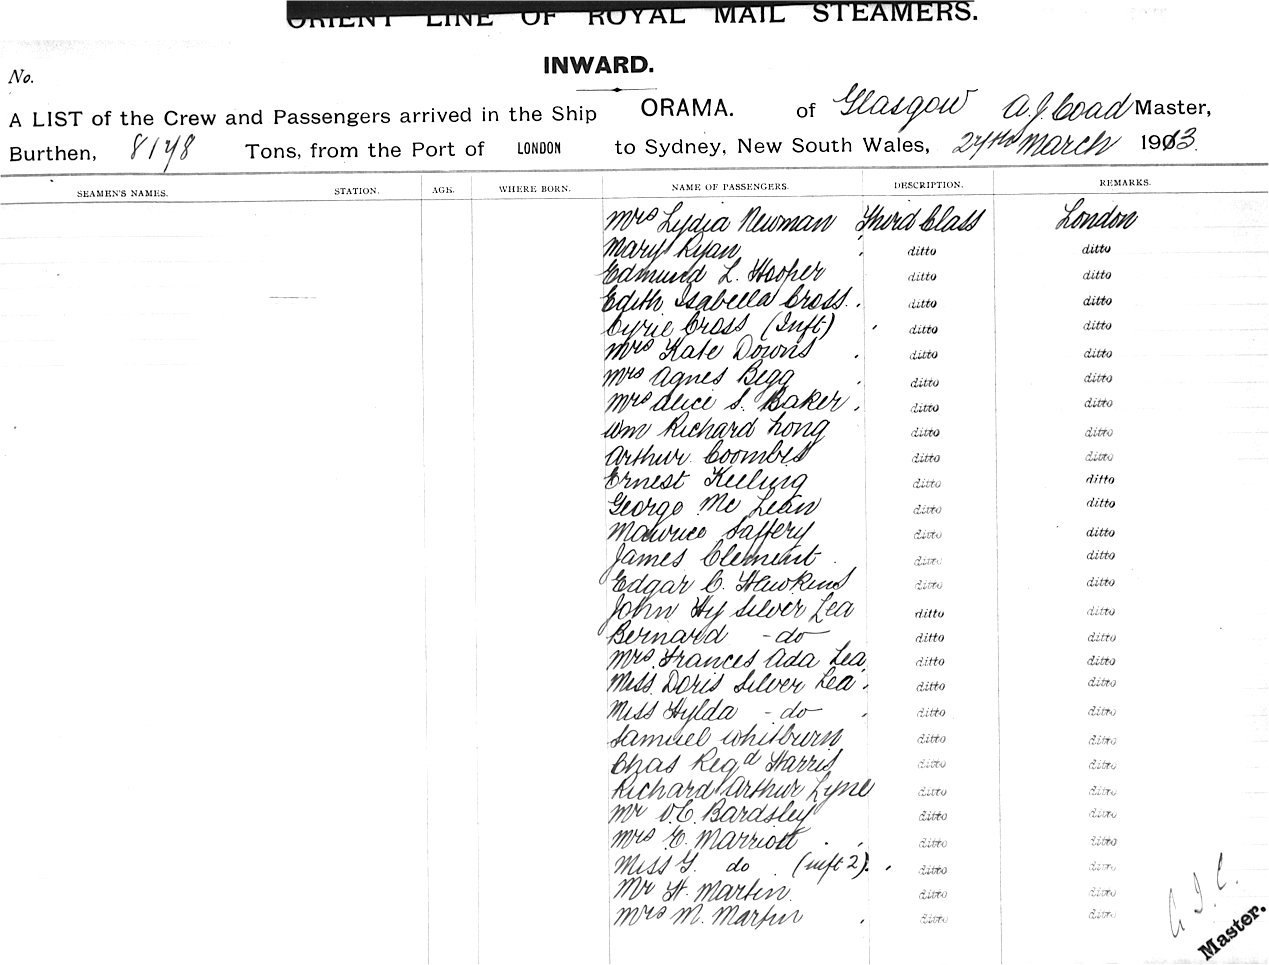 ORIENT LINE OF ROYAL MAIL STEAMERS.
INWARD.
No.
A LIST of the Crew and Passengers arrived in the Ship ORAMA. of Glasgow A.J. Coad Master,
Burthen, 8178 Tons, from the Port of LONDON to Sydney, New South Wales, 27th March 1913.
SEAMEN'S NAMES. STATION. AGE. WHERE BORN. NAME OF PASSENGERS. DESCRIPTION. REMARKS.
Mrs Lydia Newman Third Class London
Mary Ryan ditto ditto
Edmund L. Hooper ditto ditto
Edith Isabella Cross ditto ditto
Cyril Cross (Inft) ditto ditto
Mrs Kate Downs ditto ditto
Mrs Agnes Begg ditto ditto
Mrs Alice S. Baker ditto ditto
Wm Richard Long ditto ditto
Arthur Coombes ditto ditto
Ernest Keeling ditto ditto
George Mc Lean ditto ditto
Maurice Saffery ditto ditto
James Clement ditto ditto
Edgar C. Hawkins ditto ditto
John Hy Silver Lea ditto ditto
Bernard - do - ditto ditto
Mrs Frances Ada Lea ditto ditto
Miss Doris Silver Lea ditto ditto
Miss Hylda - do - ditto ditto
Samuel Whitburn ditto ditto
Chas Regd Harris ditto ditto
Richard Arthur Lyne ditto ditto
Mr V.E. Bardsley ditto ditto
Mrs E. Marriott ditto ditto
Miss G. do (inft 2) ditto ditto
Mr H. Martin ditto ditto
Mrs M. Martin ditto ditto
A.J.C.
Master.